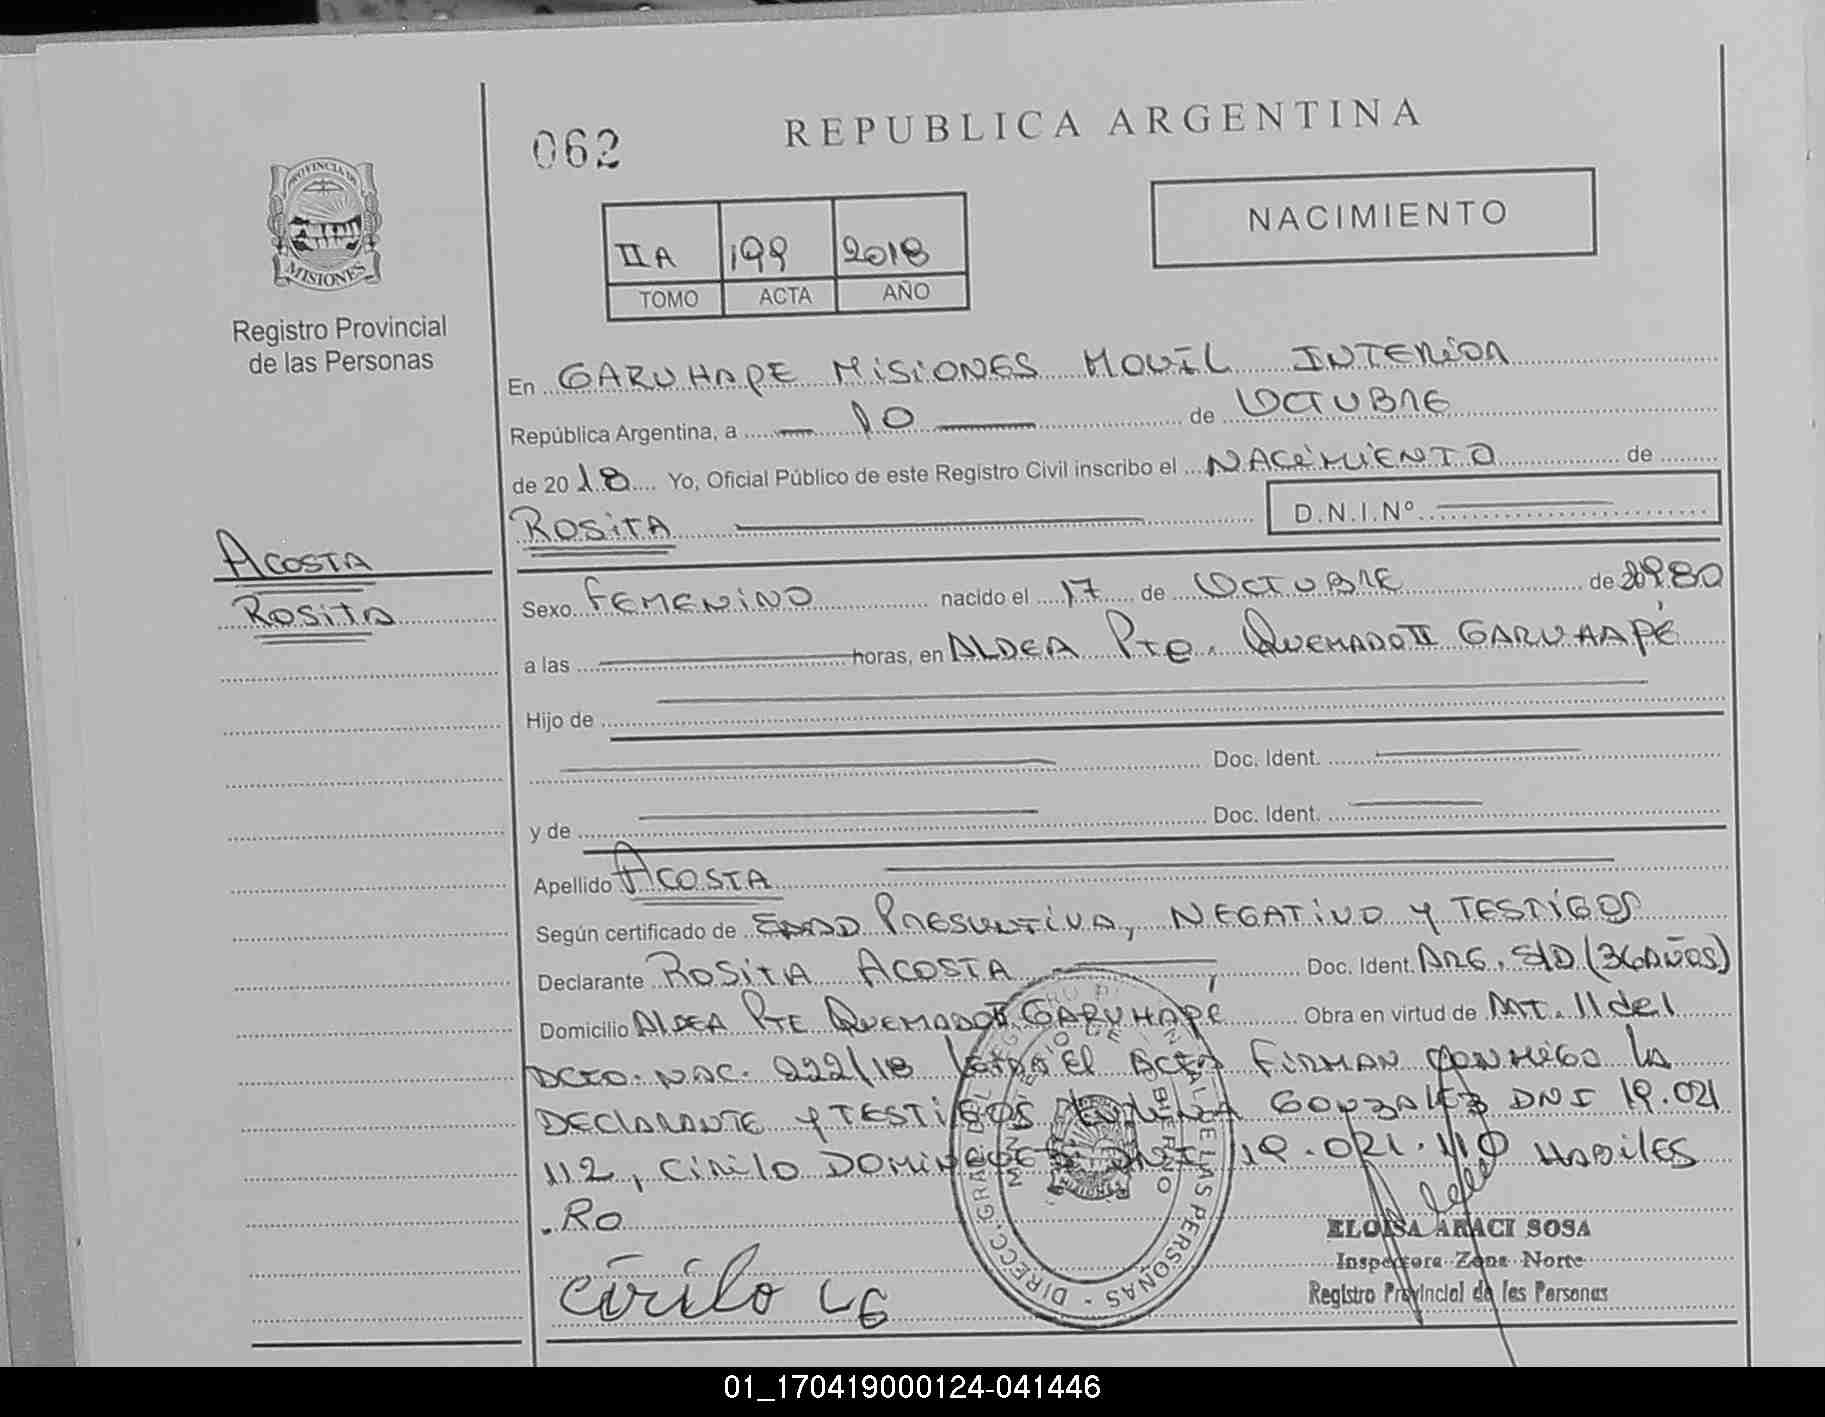 062
REPUBLICA ARGENTINA
NACIMIENTO
IIA 199 2018
TOMO ACTA AÑO
PROVINCIA DE
MISIONES
Registro Provincial
de las Personas
En GARUHAPE MISIONES MOVIL INTERIOR
República Argentina, a 10 de OCTUBRE
de 2018 Yo, Oficial Público de este Registro Civil inscribo el NACIMIENTO de
ROSITA D.N.I.Nº
ACOSTA
ROSITA
Sexo FEMENINO nacido el 17 de OCTUBRE de 1980
a las horas, en ALDEA Pte. QUEMADO II GARUHAPÉ
Hijo de
Doc. Ident.
y de Doc. Ident.
Apellido ACOSTA
Según certificado de EDAD PRESUNTIVA, NEGATIVO Y TESTIGOS
Declarante ROSITA ACOSTA Doc. Ident. ARG. S/D (36 AÑOS)
Domicilio ALDEA PTE QUEMADO II GARUHAPÉ Obra en virtud de ART. 11 del
DCTO. NAC. 222/18 Leída El ACTA FIRMAN CONMIGO LA
DECLARANTE Y TESTIGOS GONZALEZ DNI 19.021
112, CIRILO DOMINGUEZ DNI 19.021.110 HABILES
.RO
cirilo
DIRECC. GRAL. DEL REGISTRO PROVINCIAL DE LAS PERSONAS
MINISTERIO DE GOBIERNO
ELOISA ARACI SOSA
Inspectora Zona Norte
Registro Provincial de las Personas
01_170419000124-041446